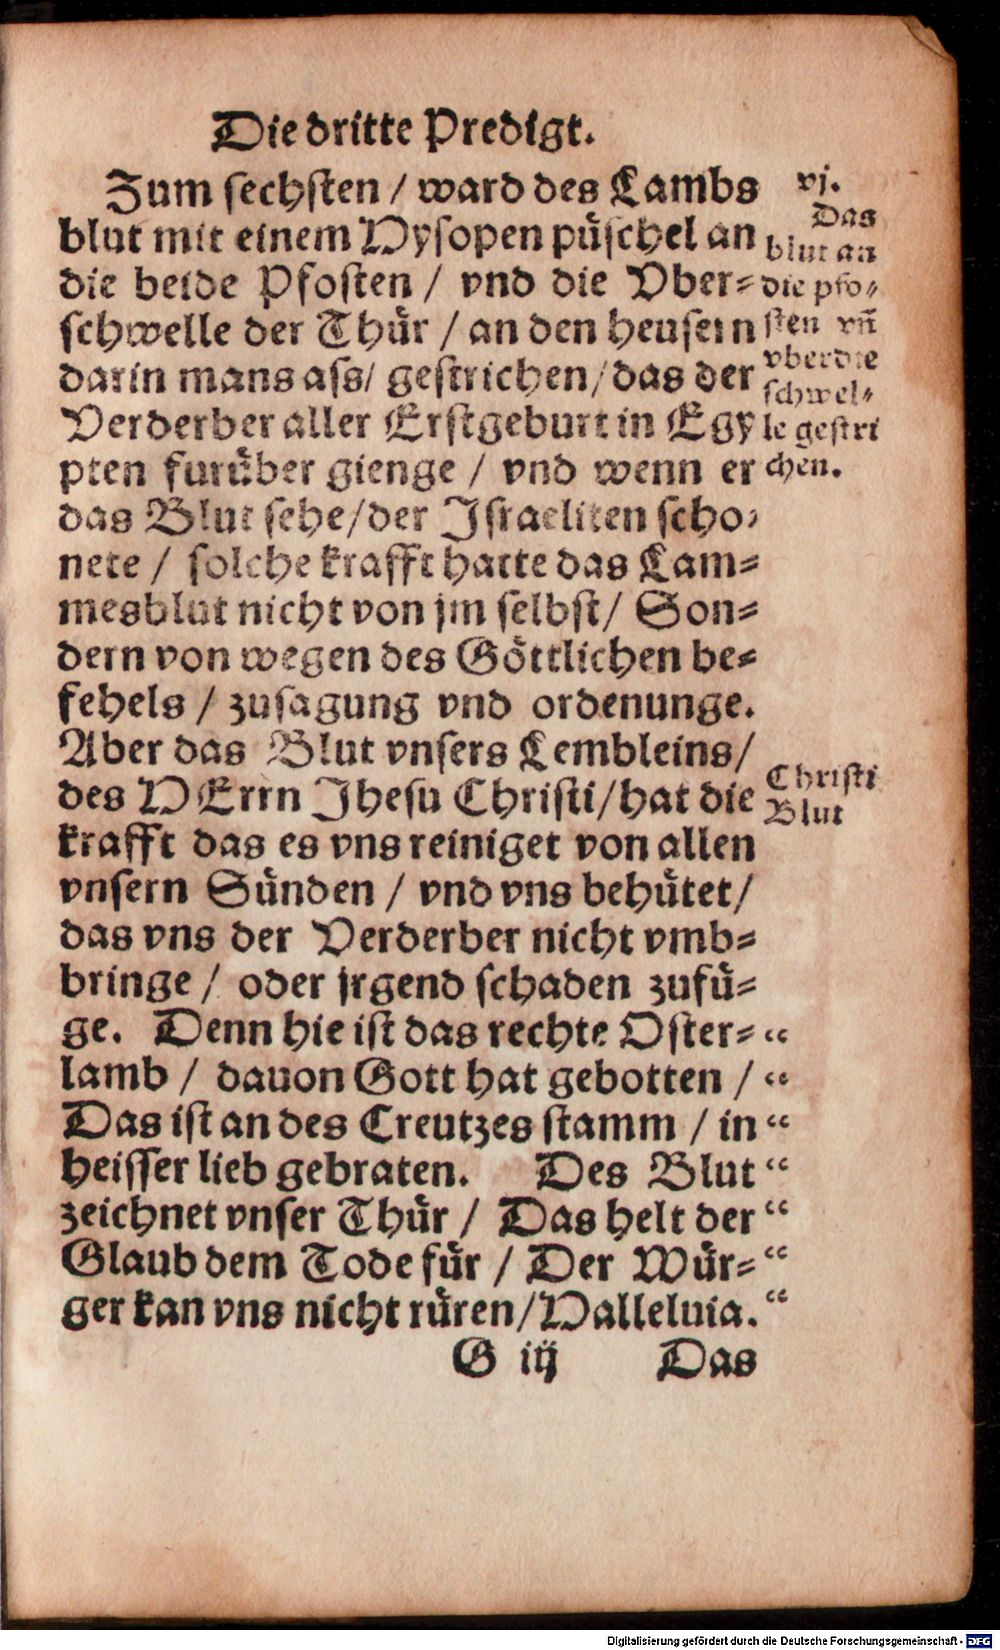 Die dritte Predigt.
Zum sechsten / ward des Lambs
blut mit einem Hysopen püschel an
die beide Pfosten / vnd die Vber-
schwelle der Thür / an den heusern
darin mans ass / gestrichen / das der
Verderber aller Erstgeburt in Egy
pten furüber gienge / vnd wenn er
das Blut sehe / der Israeliten scho-
nete / solche krafft hatte das Lam-
mesblut nicht von jm selbst / Son-
dern von wegen des Göttlichen be-
fehels / zusagung vnd ordenunge.
Aber das Blut vnsers Lembleins /
des HErrn Jhesu Christi / hat die
krafft das es vns reiniget von allen
vnsern Sünden / vnd vns behütet /
das vns der Verderber nicht vmb-
bringe / oder jrgend schaden zufü-
ge. Denn hie ist das rechte Oster- “
lamb / dauon Gott hat gebotten / “
Das ist an des Creutzes stamm / in “
heisser lieb gebraten. Des Blut “
zeichnet vnser Thür / Das helt der “
Glaub dem Tode für / Der Wür- “
ger kan vns nicht rüren / Halleluia. “
G iij Das
vj.
Das
blut an
die pfo-
sten vñ
vberdie
schwel-
le gestri
chen.
Christi
Blut
Digitalisierung gefördert durch die Deutsche Forschungsgemeinschaft - DFG